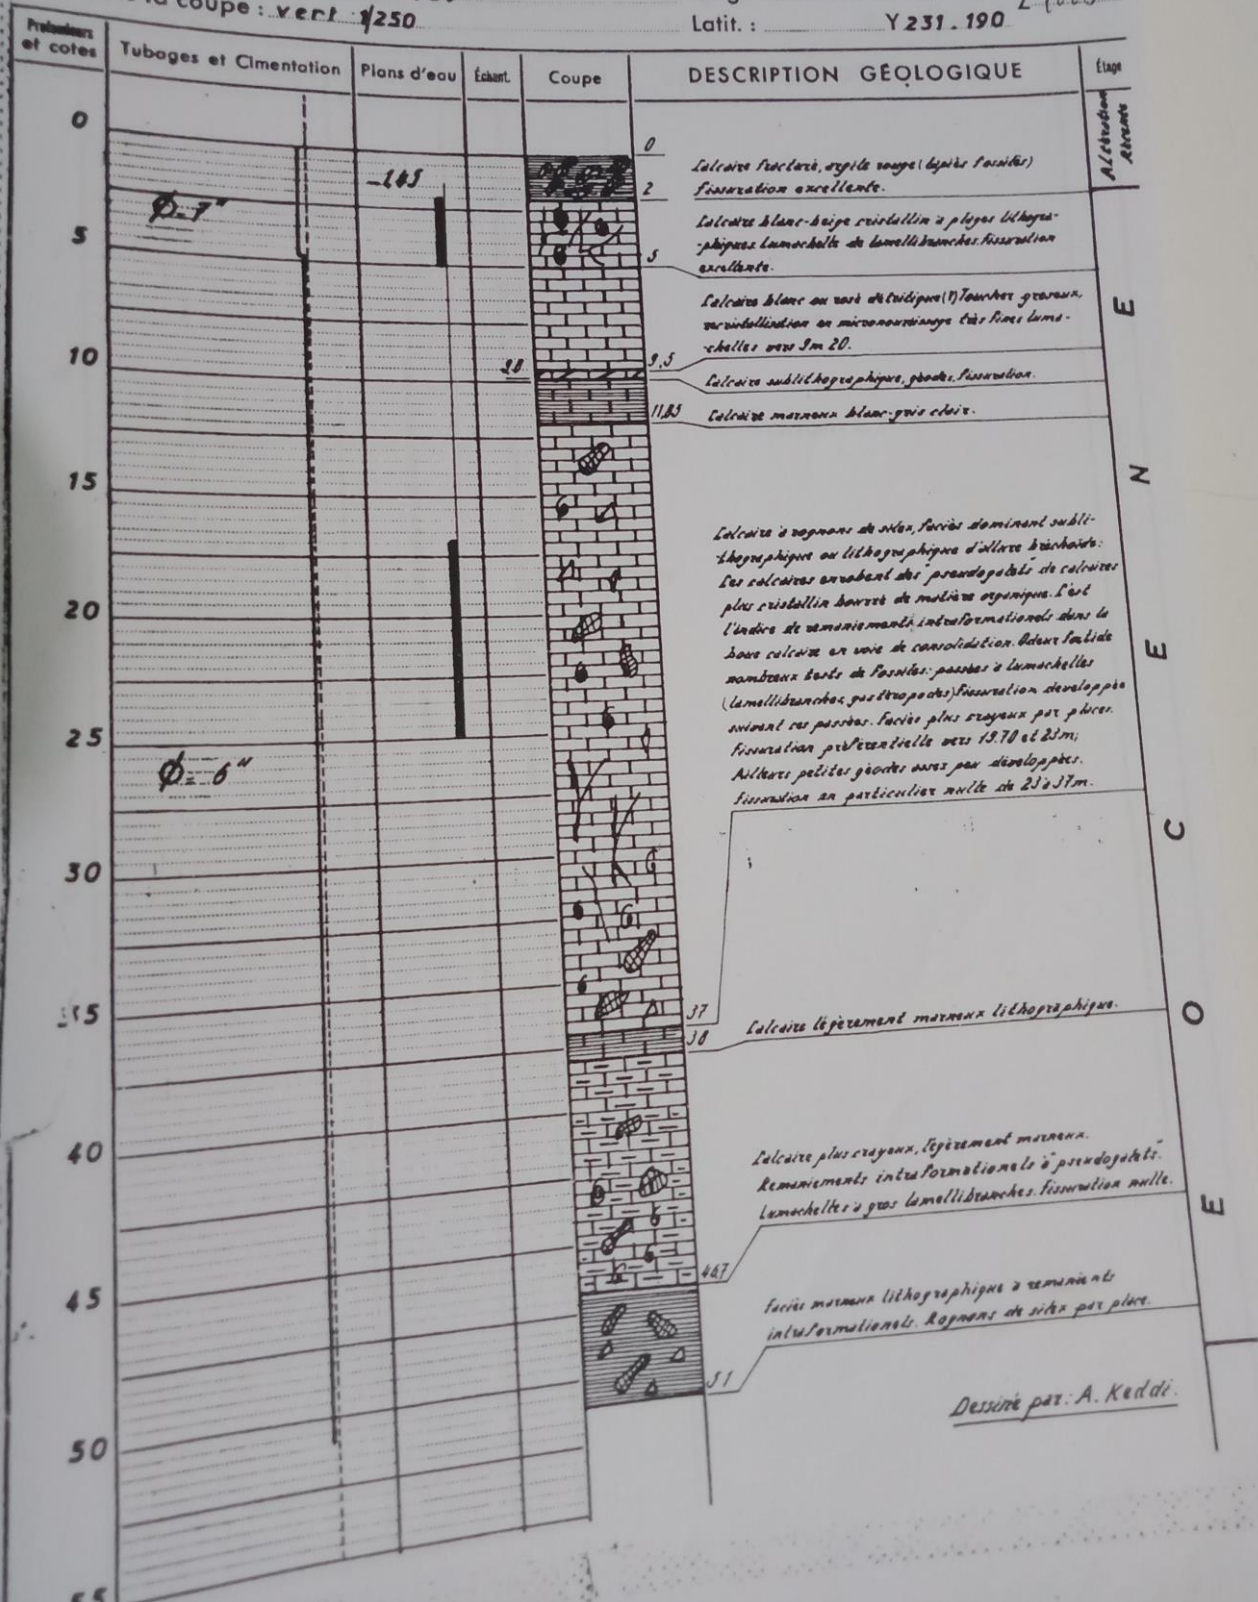 la coupe : vert 1/250
Latit. : Y 231.190
Profondeurs et cotes
Tubages et Cimentation
Plans d'eau
Échant.
Coupe
DESCRIPTION GÉOLOGIQUE
Étage
Altération Récente
0
5
10
15
20
25
30
35
40
45
50
55
Ø=7"
Ø=6"
-2.45
0
2
5
9,5
9.8
11,85
37
38
46,7
51
Calcaire fracturé, argile rouge (lapiès fossiles)
Fissuration excellente.
Calcaire blanc-beige cristallin à plages lithogra-
-phiques. Lumachelle de lamellibranches. Fissuration
excellente.
Calcaire blanc ou rosé détritique(?) Toucher graveux,
recristallisation en micronourrissage très fines luma-
-chelles vers 9m 20.
Calcaire sublithographique, géodes, fissuration.
Calcaire marneux blanc-gris clair.
Calcaire à rognons de silex, faciès dominant subli-
-thographique ou lithographique d'allure bréchoïde:
Les calcaires enrobent des "pseudogalets" de calcaires
plus cristallin bourré de matière organique. C'est
l'indice de remaniements intraformationels dans la
boue calcaire en voie de consolidation. Odeur foetide
nombreux tests de fossiles: passées à lumachelles
(lamellibranches, gasthropodes) Fissuration développée
suivant ces passées. Faciès plus crayeux par places.
Fissuration préférentielle vers 19.70 et 23m;
Ailleurs petites géodes assez peu développées.
Fissuration en particulier nulle de 23 à 37m.
Calcaire légèrement marneux lithographique.
Calcaire plus crayeux, légèrement marneux.
Remaniements intraformationels à "pseudogalets".
Lumachelles à gros lamellibranches. Fissuration nulle.
Faciès marneux lithographique à remanients
intraformationels. Rognons de silex par place.
E
N
E
C
O
E
Dessiné par: A. Keddi.